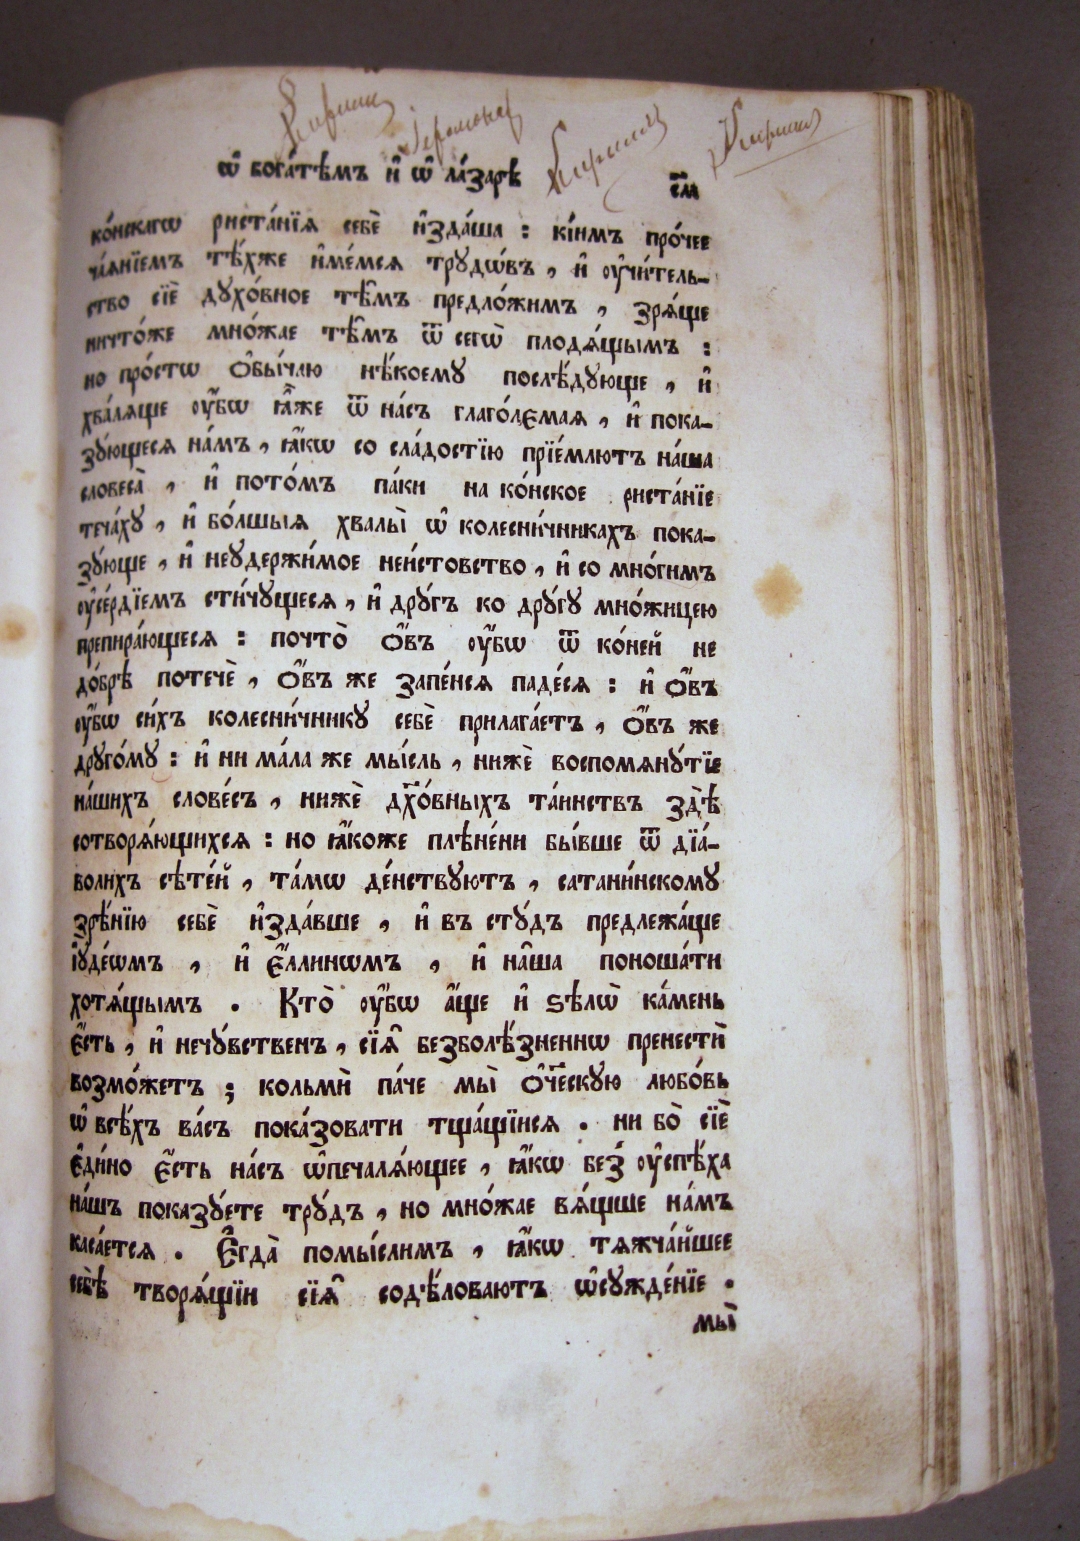 Кирилл Іеромонах Кирилла Кирилл
ѡ҆ бога́тѣмъ и҆ ѡ҆ ла́зарѣ
ко́нскагѡ риста́нїѧ себѐ и҆зда́ша : кі́имъ про́чее
ча́ѧнїемъ тѣ́хже и҆ме́мсѧ трꙋдѡ́въ , и҆ оу҆чи́тель-
ство сїѐ дꙋхо́вное тѣ̑мъ предло́жимъ , зрѧ́ще
ничто́же мно́жае тѣ̑мъ ѿ сегѡ̀ плодѧ́щымъ :
но про́стѡ ѻ҆бы́чаю нѣ́коемꙋ послѣ́дꙋюще , и҆
хва́лѧще оу҆́бѡ ꙗ҆̀же ѿ на́съ глаго́лємаѧ , и҆ пока-
зꙋ́ющесѧ на́мъ , ꙗ҆́кѡ со сла́достїю прїе́млютъ на́ша
словеса̀ , и҆ пото́мъ па́ки на ко́нское риста́нїе
теча́хꙋ , и҆ бо́лшыѧ хвалы̀ ѡ҆ колесни́чникахъ пока-
зꙋ́юще , и҆ неꙋдержи́мое неи́стовство , и҆ со мно́гимъ
оу҆се́рдїемъ сти́чꙋщесѧ , и҆ дрꙋ́гъ ко дрꙋ́гꙋ мно́жицею
препира́ющесѧ : почто̀ ѻ҆́въ оу҆́бѡ ѿ ко́ней не
до́брѣ потечѐ , ѻ҆́въ же запе́нсѧ паде́сѧ : и҆ ѻ҆́въ
оу҆́бѡ си́хъ колесни́чникꙋ себѐ прилага́етъ , ѻ҆́въ же
дрꙋго́мꙋ : и҆ ни ма́ла же мы́сль , нижѐ воспомѧнꙋ́тїе
на́шихъ слове́съ , нижѐ дꙋⷯо́вныхъ та́инствъ здѣ̀
сотворѧ́ющихсѧ : но ꙗ҆́коже плѣне́ни бы́вше ѿ дїа́-
волихъ сѣте́й , та́мѡ де́нствꙋютъ , сатани́нскомꙋ
зрѣ́нїю себѐ и҆зда́вше , и҆ въ стꙋ́дъ предлежа́ще
і҆ꙋде́ѡмъ , и҆ є҆́ллинѡмъ , и҆ на̑ша поноша́ти
хотѧ́щымъ . Кто̀ оу҆́бѡ а҆́ще и҆ ѕѣлѡ̀ ка́мень
є҆́сть , и҆ нечꙋ́вственъ , сїѧ̑ безболѣ́зненнѡ пренестѝ
возмо́жетъ ; кольмѝ па́че мы̀ ѻ҆ч҃ескꙋю любо́вь
ѡ҆ всѣ́хъ ва́съ пока́зовати тща́щїисѧ . ни бо̀ сїѐ
є҆ди́но є҆́сть на́съ ѡ҆печалѧ́ющее , ꙗ҆́кѡ без̾ оу҆спѣ́ха
на́шъ показꙋ́ете трꙋ́дъ , но мно́жае вѧ́щше на́мъ
каса́етсѧ . Є҆гда̀ помы́слимъ , ꙗ҆́кѡ тѧжча́йшее
себѣ̀ творѧ́щїи сїѧ̑ содѣ́ловаютъ ѡ҆сꙋжде́нїе .
мы̀